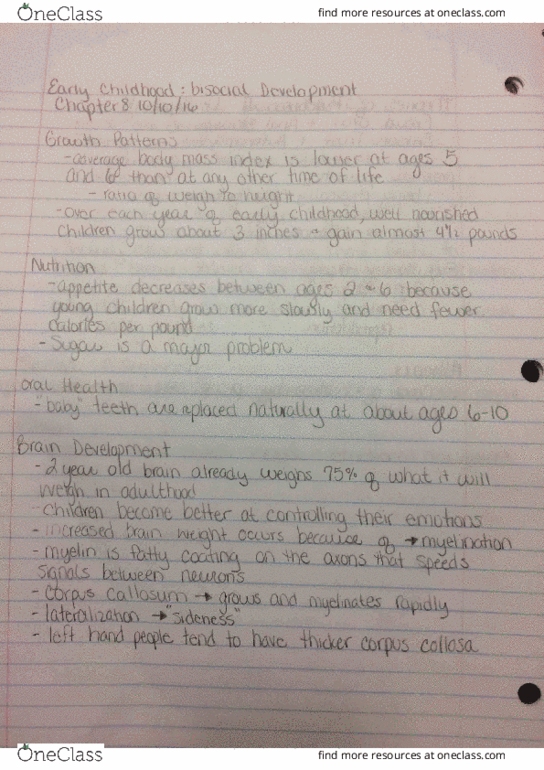 OneClass
find more resources at oneclass.com
Early Childhood: bisocial Development
Chapter 8 10/10/16
Growth Patterns
-average body mass index is lower at ages 5
and 6 than at any other time of life
- ratio of weigh to height
-over each year of early childhood, well nourished
children grow about 3 inches + gain almost 4½ pounds
Nutrition
-appetite decreases between ages 2-6 because
young children grow more slowly and need fewer
calories per pound
- Sugar is a major problem
Oral Health
-"baby" teeth are replaced naturally at about ages 6-10
Brain Development
- 2 year old brain already weighs 75% of what it will
weigh in adulthood
children become better at controlling their emotions
- increased brain weight occurs because of → myelination
- myelin is fatty coating on the axons that speeds
signals between neurons
- corpus callosum → grows and myelinates rapidly
- lateralization → "sideness"
- left hand people tend to have thicker corpus collosa
OneClass
find more resources at oneclass.com